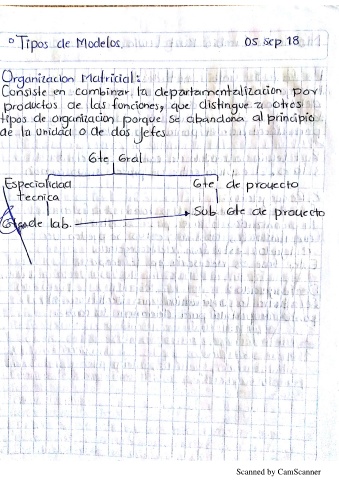 ° Tipos de Modelos.
05 sep 18
Organizacion Matricial:
Consiste en combinar la departamentalización por
productos de las funciones, que distingue a otros
tipos de organizacion porque se abandona al principio
de la unidad o de dos Jefes
Gte Gral
Especialidad
tecnica
Gte, de proyecto
de lab.
Sub Gte de proyecto
Scanned by CamScanner